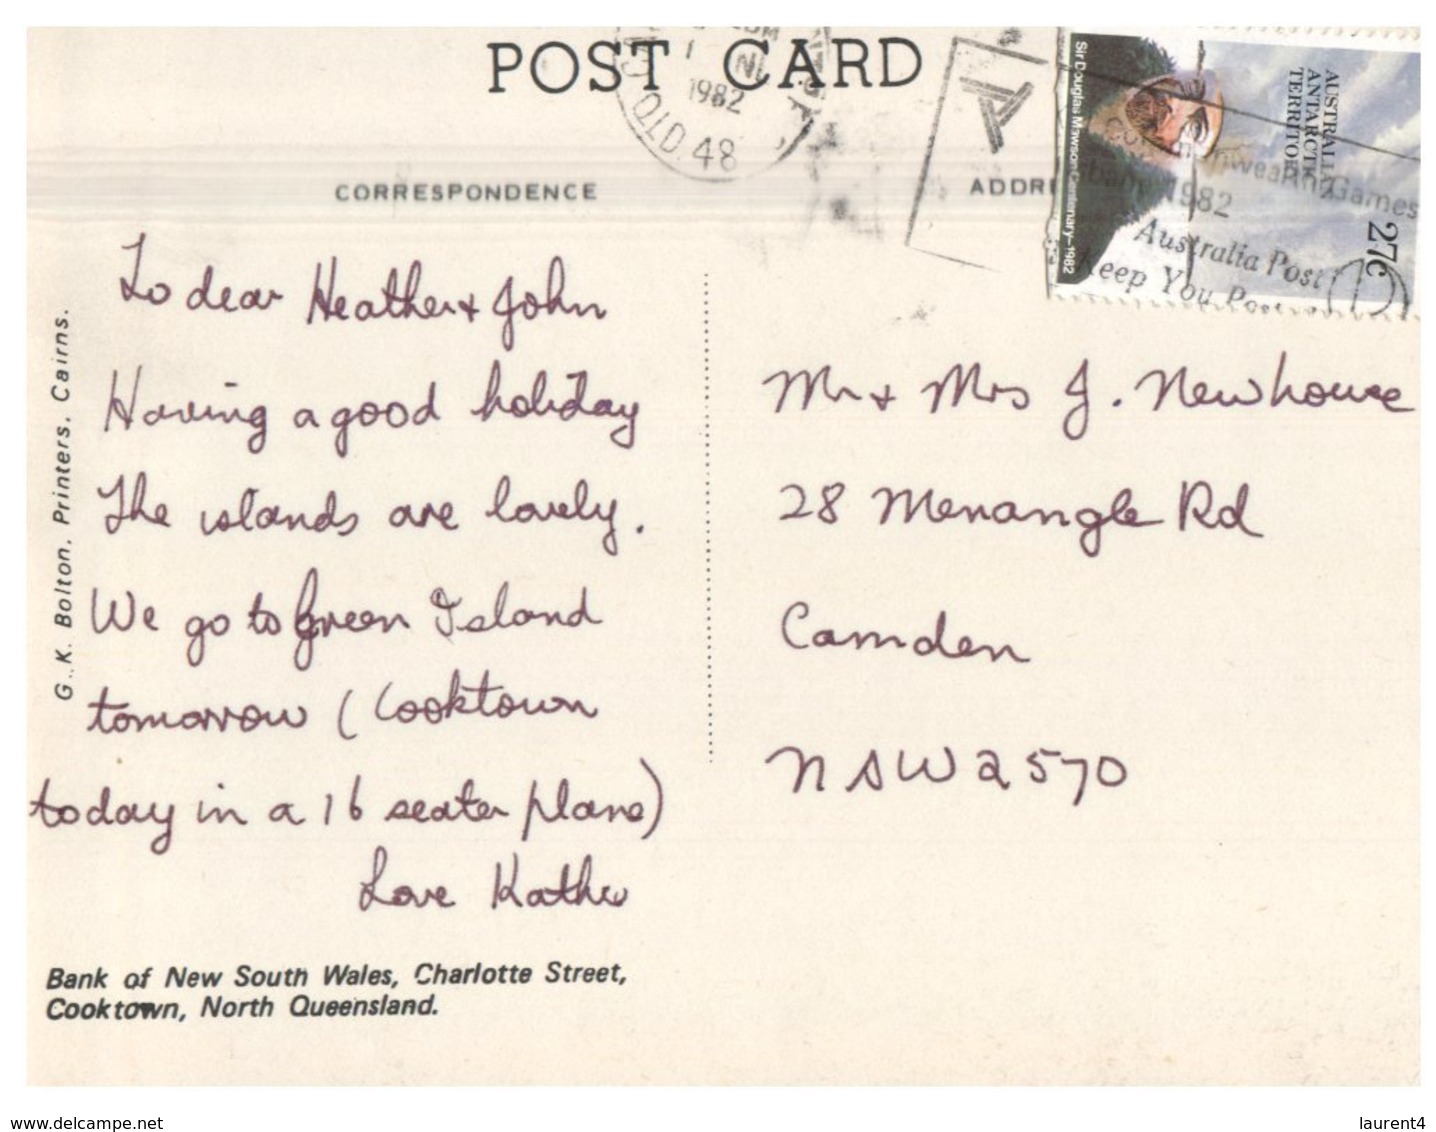 POST CARD
1982
QLD 48
AUSTRALIAN
ANTARCTIC
TERRITORY
Sir Douglas Mawson Centenary-1982
27c
Commonwealth Games
1982
Australia Post
Keep You
CORRESPONDENCE
To dear Heather + John
Having a good holiday
The islands are lovely.
We go to Green Island
tomorrow (Cooktown
today in a 16 seater plane)
Love
Mr + Mrs J. Newhouse
28 Menangle Rd
Camden
NSW 2570
G. K. Bolton, Printers, Cairns.
Bank of New South Wales, Charlotte Street,
Cooktown, North Queensland.
www.delcampe.net
laurent4